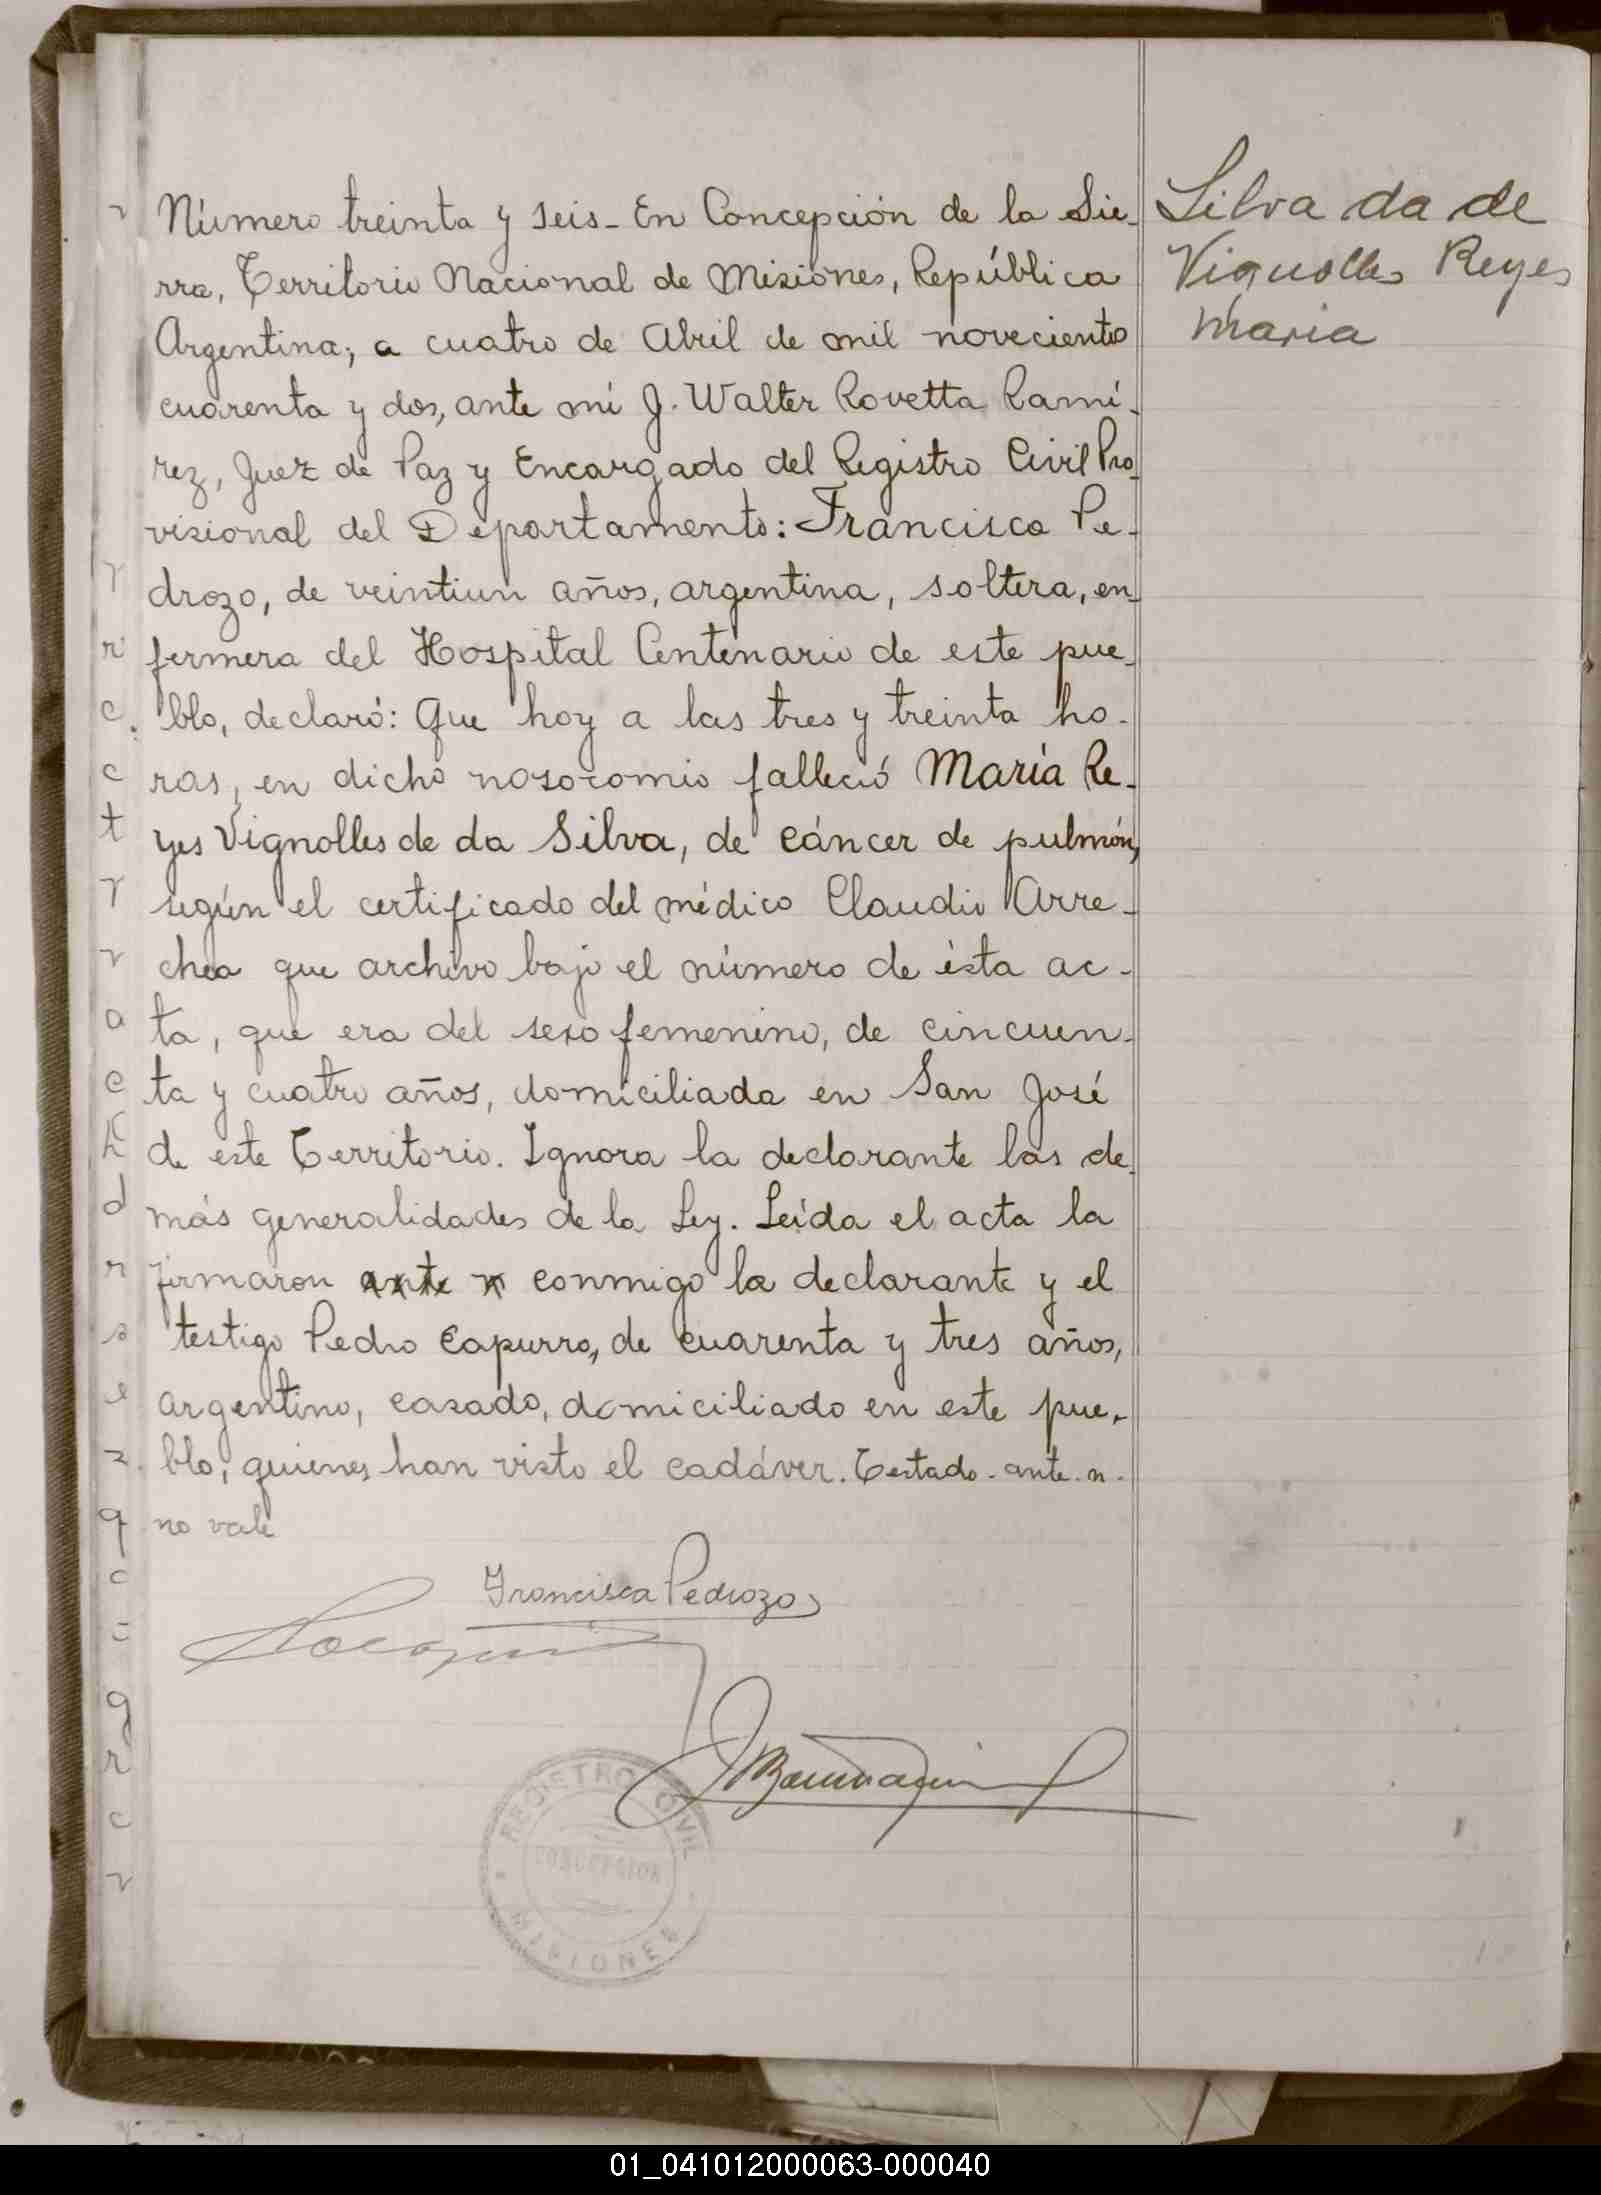 Número treinta y seis - En Concepción de la Sie-
rra, Territorio Nacional de Misiones, República
Argentina; a cuatro de Abril de mil novecientos
cuarenta y dos, ante mí J. Walter Rovetta Ramí-
rez, Juez de Paz y Encargado del Registro Civil Pro-
visional del Departamento: Francisca Pe-
drozo, de veintiun años, argentina, soltera, en-
fermera del Hospital Centenario de este pue-
blo, declaró: Que hoy a las tres y treinta ho-
ras, en dicho nosocomio falleció María Re-
yes Vignolles de da Silva, de cáncer de pulmón,
según el certificado del médico Claudio Arre-
chea que archivo bajo el número de ésta ac-
ta, que era del sexo femenino, de cincuen-
ta y cuatro años, domiciliada en San José
de este Territorio. Ignora la declarante las de-
más generalidades de la Ley. Leída el acta la
firmaron ante n conmigo la declarante y el
testigo Pedro Capurro, de cuarenta y tres años,
argentino, casado, domiciliado en este pue-
blo, quienes han visto el cadáver. Testado - ante - n -
no vale
Francisca Pedrozo
REGISTRO CIVIL
CONCEPCION
MISIONES
Silva da de
Vignolles Reyes
María
01_041012000063-000040